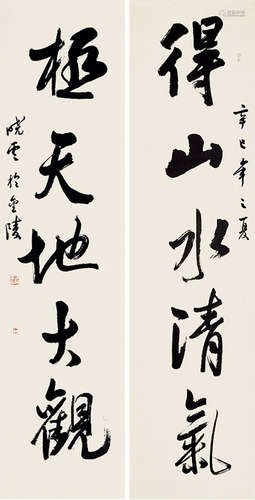 得山水清氣
辛巳年之夏
極天地大觀
曉雲於金陵